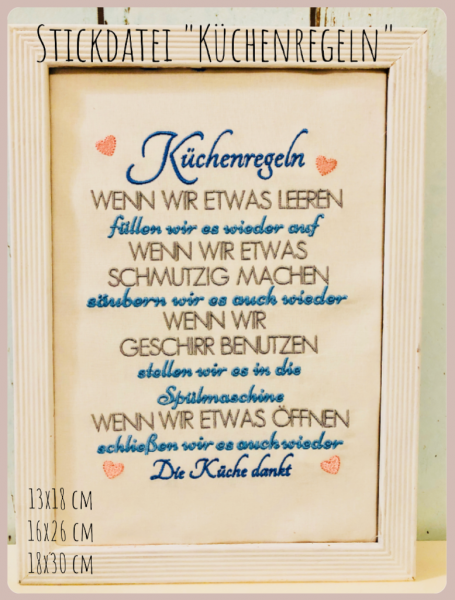 Stickdatei "Küchenregeln"
Küchenregeln
WENN WIR ETWAS LEEREN
füllen wir es wieder auf
WENN WIR ETWAS
SCHMUTZIG MACHEN
säubern wir es auch wieder
WENN WIR
GESCHIRR BENUTZEN
stellen wir es in die
Spülmaschine
WENN WIR ETWAS ÖFFNEN
schließen wir es auch wieder
Die Küche dankt
13x18 cm
16x26 cm
18x30 cm